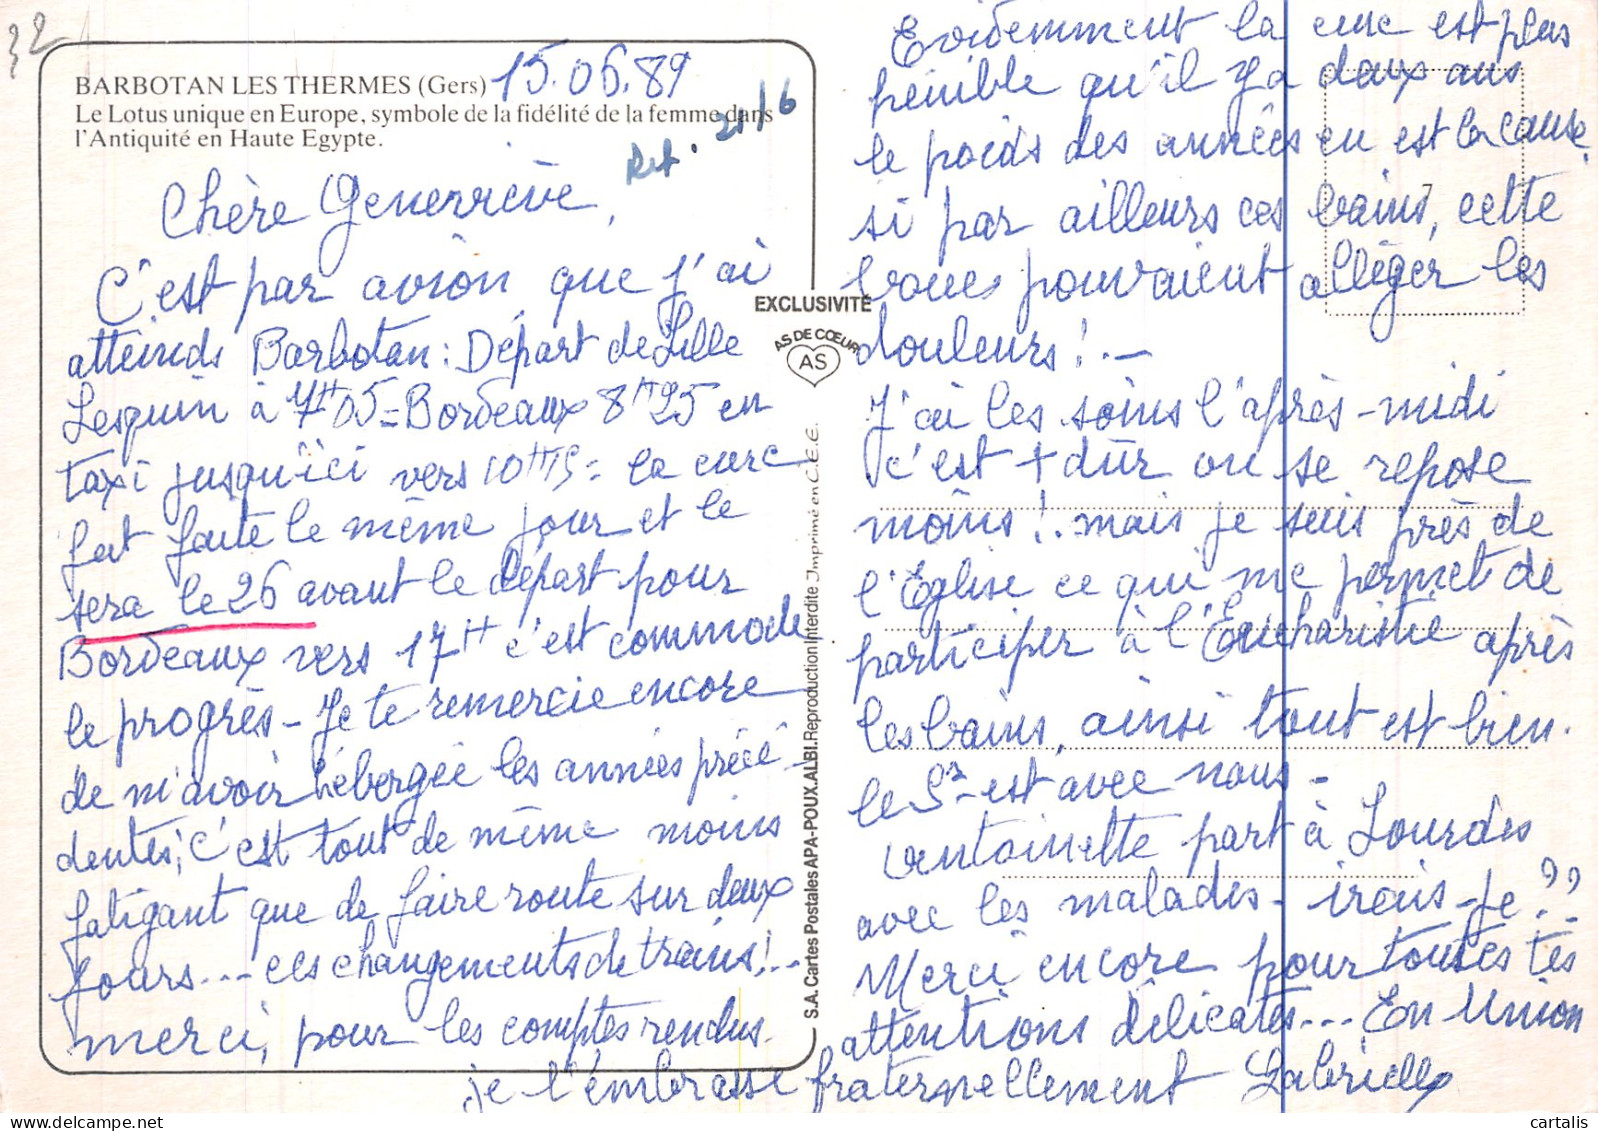 32
BARBOTAN LES THERMES (Gers) 15.06.89
Le Lotus unique en Europe, symbole de la fidélité de la femme dans
l'Antiquité en Haute Egypte.
Ret. 21/6
Chère Geneviève,
C'est par avion que j'ai
atteinds Barbotan : Départ de Lille
Lesquin à 7H05 = Bordeaux 8H25 en
taxi jusqu'ici vers 10H15 = la cure
fut faite le même jour et le
sera le 26 avant le départ pour
Bordeaux vers 17H c'est commode
le progrès - Je te remercie encore
de m'avoir hébergée les années précé-
dentes; c'est tout de même moins
fatigant que de faire route sur deux
jours... ces changements de trains!..
merci, pour les comptes rendus.
EXCLUSIVITÉ
AS DE CŒUR
AS
S.A. Cartes Postales APA-POUX.ALBI. Reproduction Interdite Imprimé en C.E.E.
Evidemment la cure est plus
pénible qu'il y a deux ans
le poids des années en est la cause
si par ailleurs ces bains, cette
boues pouvaient alléger les
douleurs! . -
J'ai les soins l'après-midi
c'est + dûr on se repose
moins!. mais je suis près de
l'Eglise ce qui me permet de
participer à l'Eucharistie après
les bains, ainsi tout est bien.
le Sr est avec nous -
Antoinette part à Lourdes
avec les malades - irais-je??
Merci encore pour toutes tes
attentions délicates... En Union
je t'embrasse fraternellement Gabrielle
cartalis